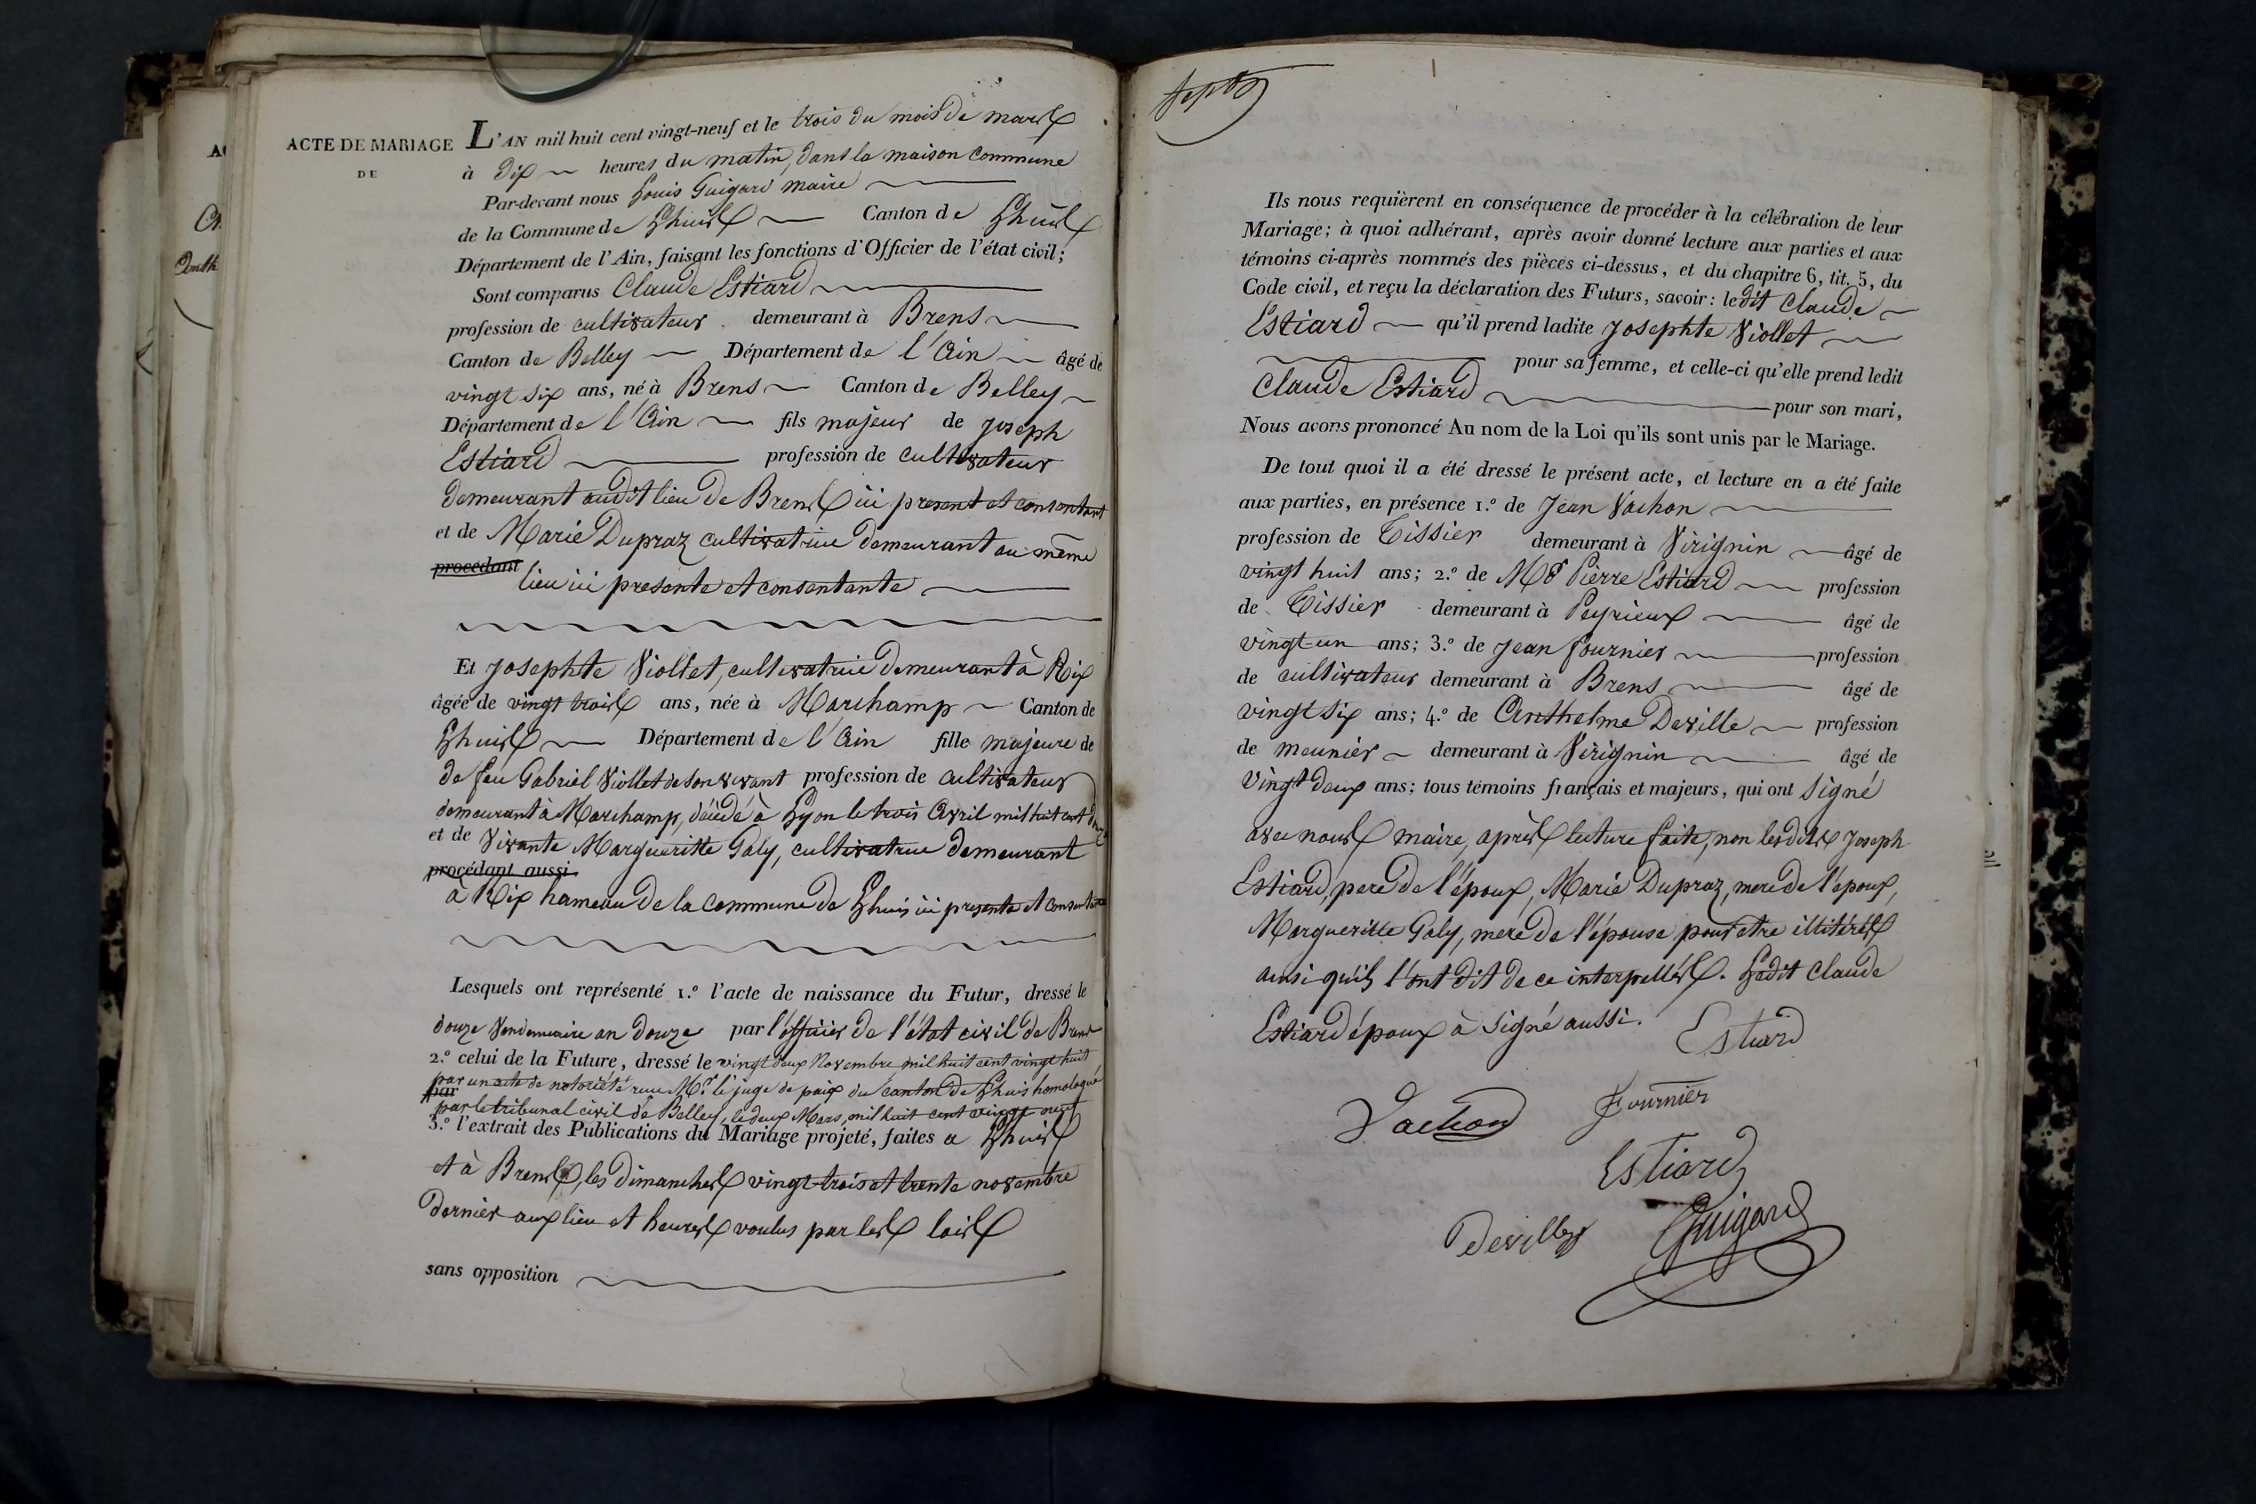 ACTE DE MARIAGE
DE
L'AN mil huit cent vingt-neuf et le trois du mois de mars
à dix heures du matin, dans la maison commune
Par-devant nous Louis Guigard maire
de la Commune de Lhuis Canton de Lhuis
Département de l'Ain, faisant les fonctions d'Officier de l'état civil;
Sont comparus Claude Estiard
profession de cultivateur demeurant à Brens
Canton de Belley Département de l'Ain âgé de
vingt six ans, né à Brens Canton de Belley
Département de l'Ain fils majeur de joseph
Estiard profession de cultivateur
demeurant audit lieu de Brens ici present et consentant
et de Marie Dupraz cultivatrice demeurant au même
procédant
lieu ici presente et consentante
Et josephte Viollet, cultivatrice demeurant à Rix
âgée de vingt trois ans, née à Marchamp Canton de
Lhuis Département de l'Ain fille majeure de
de feu Gabriel Viollet de son vivant profession de cultivateur
demeurant à Marchamp, décédé à Lyon le trois Avril mil huit cent douze
et de Vivante Margueritte Galy, cultivatrice demeurant
procédant aussi
à Rix hameau de la commune de Lhuis ici presente et consentante
Lesquels ont représenté 1.º l'acte de naissance du Futur, dressé le
douze Vendemiaire an douze par l'officier de l'état civil de Brens
2.º celui de la Future, dressé le vingt deux Novembre mil huit cent vingt huit
par un acte de notoriété reçu Mr. le juge de paix du canton de Lhuis homologué
par
par le tribunal civil de Belley, le deux Mars, mil huit cent vingt neuf
3.º l'extrait des Publications du Mariage projeté, faites a Lhuis
et à Brens, les dimanches vingt-trois et trente novembre
dernier aux lieu et heures voulus par les lois
sans opposition
Ils nous requièrent en conséquence de procéder à la célébration de leur
Mariage; à quoi adhérant, après avoir donné lecture aux parties et aux
témoins ci-après nommés des pièces ci-dessus, et du chapitre 6, tit. 5, du
Code civil, et reçu la déclaration des Futurs, savoir: ledit Claude
Estiard qu'il prend ladite josephte Viollet
pour sa femme, et celle-ci qu'elle prend ledit
Claude Estiard pour son mari,
Nous avons prononcé Au nom de la Loi qu'ils sont unis par le Mariage.
De tout quoi il a été dressé le présent acte, et lecture en a été faite
aux parties, en présence 1.º de Jean Vachon
profession de Tissier demeurant à Virignin âgé de
vingt huit ans; 2.º de Pierre Estiard profession
de Tissier demeurant à Peyrieux âgé de
vingt-un ans; 3.º de jean fournier profession
de cultivateur demeurant à Brens âgé de
vingt six ans; 4.º de Anthelme Deville profession
de meunier demeurant à Virignin âgé de
Vingt deux ans; tous témoins français et majeurs, qui ont signé
avec nous maire, après lecture faite, non lesdits joseph
Estiard, pere de l'époux, Marie Dupraz, mere de l'époux,
Margueritte Galy, mere de l'épouse pour etre illitérés
ainsi qu'ils l'ont dit de ce interpellés. Ledit Claude
Estiard époux à signé aussi. Estiard
Vachon Fournier
Estiard
Deville Guigard